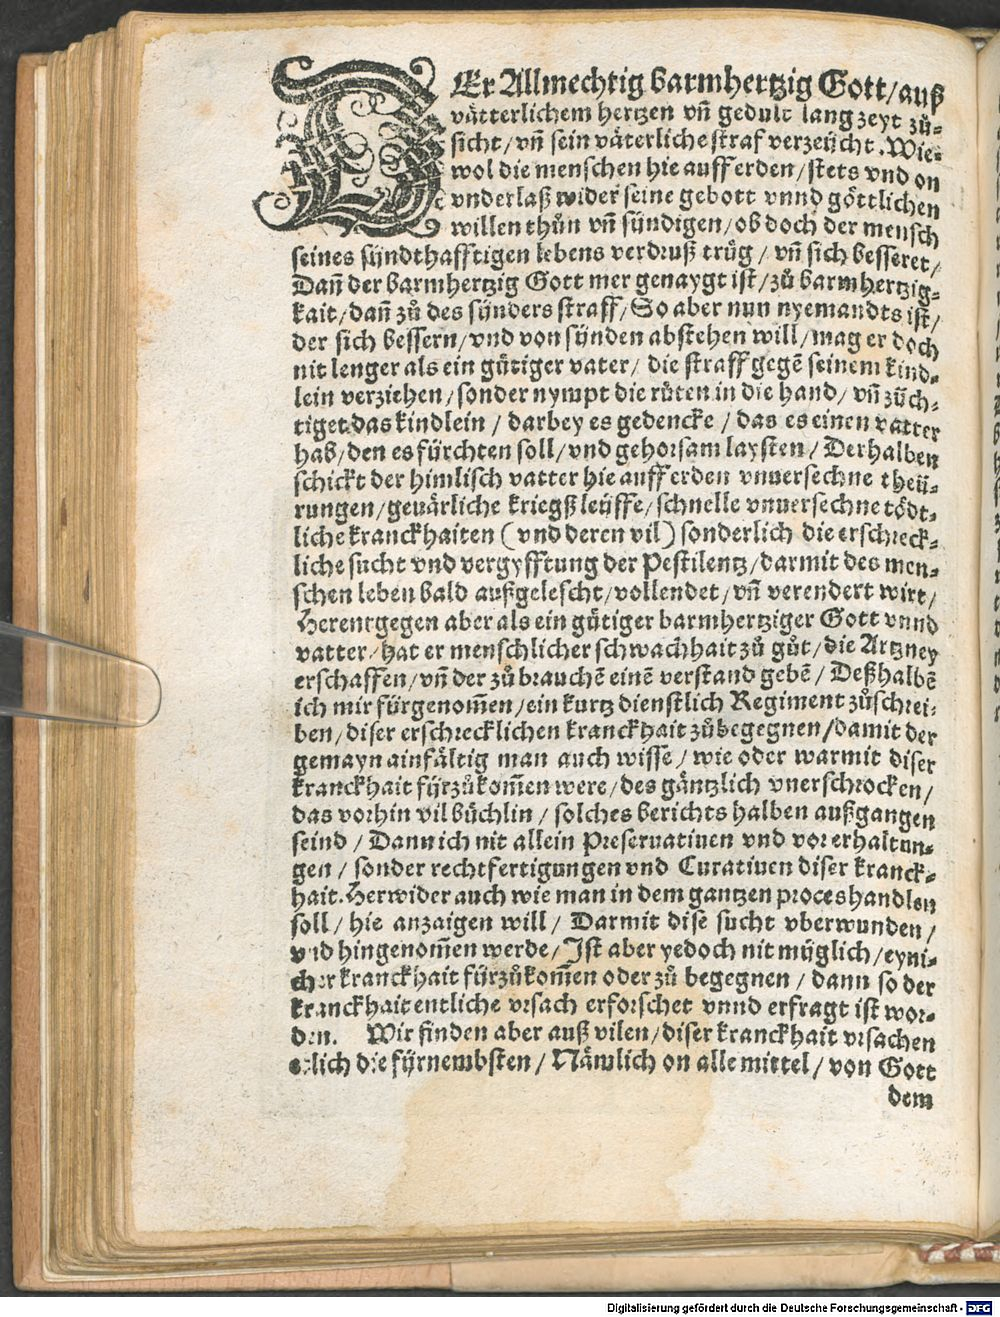 DEr Allmechtig barmhertzig Gott/auß
vätterlichem hertzen vñ gedult lang zeyt zů⸗
sicht/vñ sein väterliche straf verzeücht. Wie⸗
wol die menschen hie auff erden/stets vnd on
vnderlaß wider seine gebott vnnd göttlichen
willen thůn vñ sündigen/ob doch der mensch
seines sündthafftigen lebens verdruß trüg/ vñ sich besseret/
Dañ der barmhertzig Gott mer genaygt ist/zů barmhertzig⸗
kait/dañ zů des sünders straff/So aber nun nyemandts ist/
der sich bessern/vnd von sünden abstehen will/mag er doch
nit lenger als ein gütiger vater/ die straff gegē seinem kind⸗
lein verziehen/sonder nympt die růten in die hand/ vñ züch⸗
tiget das kindlein/ darbey es gedencke/ das es einen vatter
hab/den es fürchten soll/vnd gehorsam laysten/Derhalben
schickt der himlisch vatter hie auff erden vnuersechne theü⸗
rungen/geuärliche kriegß leüffe/schnelle vnuersechne tödt⸗
liche kranckhaiten (vnd deren vil) sonderlich die erschreck⸗
liche sucht vnd vergyfftung der Pestilentz/darmit des men⸗
schen leben bald außgelescht/vollendet/vñ verendert wirt/
Herentgegen aber als ein gütiger barmhertziger Gott vnnd
vatter/hat er menschlicher schwachhait zů gůt/die Artzney
erschaffen/vñ der zů brauchē einē verstand gebē/ Deßhalbē
ich mir fürgenom̃en/ein kurtz dienstlich Regiment zůschrei⸗
ben/diser erschrecklichen kranckhait zůbegegnen/damit der
gemayn ainfältig man auch wisse/ wie oder warmit diser
kranckhait fürzůkom̃en were/des gäntzlich vnerschrocken/
das vorhin vil büchlin/ solches berichts halben außgangen
seind/ Dann ich nit allein Preseruatiuen vnd vor erhaltun⸗
gen/ sonder rechtfertigungen vnd Curatiuen diser kranck⸗
hait. Herwider auch wie man in dem gantzen proces handlen
soll/ hie anzaigen will/ Darmit dise sucht vberwunden/
vnd hingenom̃en werde/Ist aber yedoch nit müglich/eyni⸗
cher kranckhait fürzůkom̃en oder zů begegnen/ dann so der
kranckhait entliche vrsach erforschet vnnd erfragt ist wor⸗
den. Wir finden aber auß vilen/diser kranckhait vrsachen
etlich die fürnembsten/Nämlich on alle mittel/ von Gott
dem
Digitalisierung gefördert durch die Deutsche Forschungsgemeinschaft - DFG